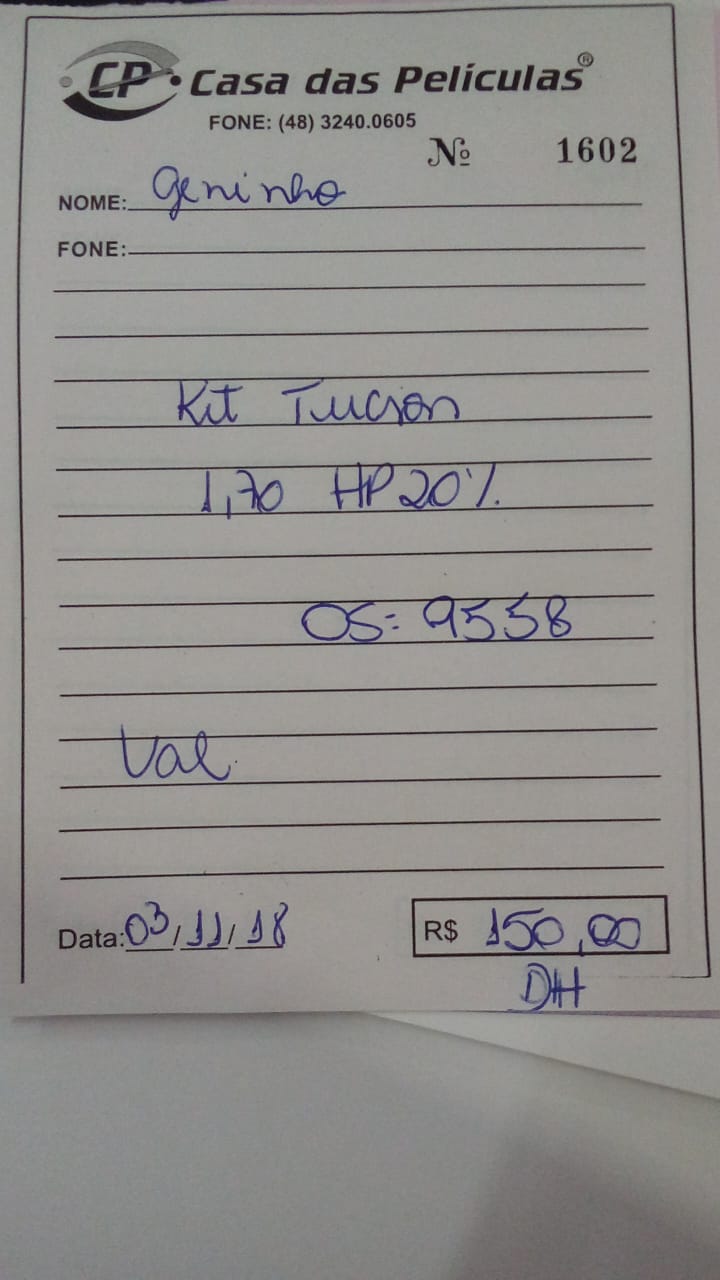 CP Casa das Películas®
FONE: (48) 3240.0605
Nº 1602
NOME: Geninho
FONE:
Kit Tucson
1,70 HP 20%
OS: 9558
Val
Data: 03/11/18 R$ 150,00
DH